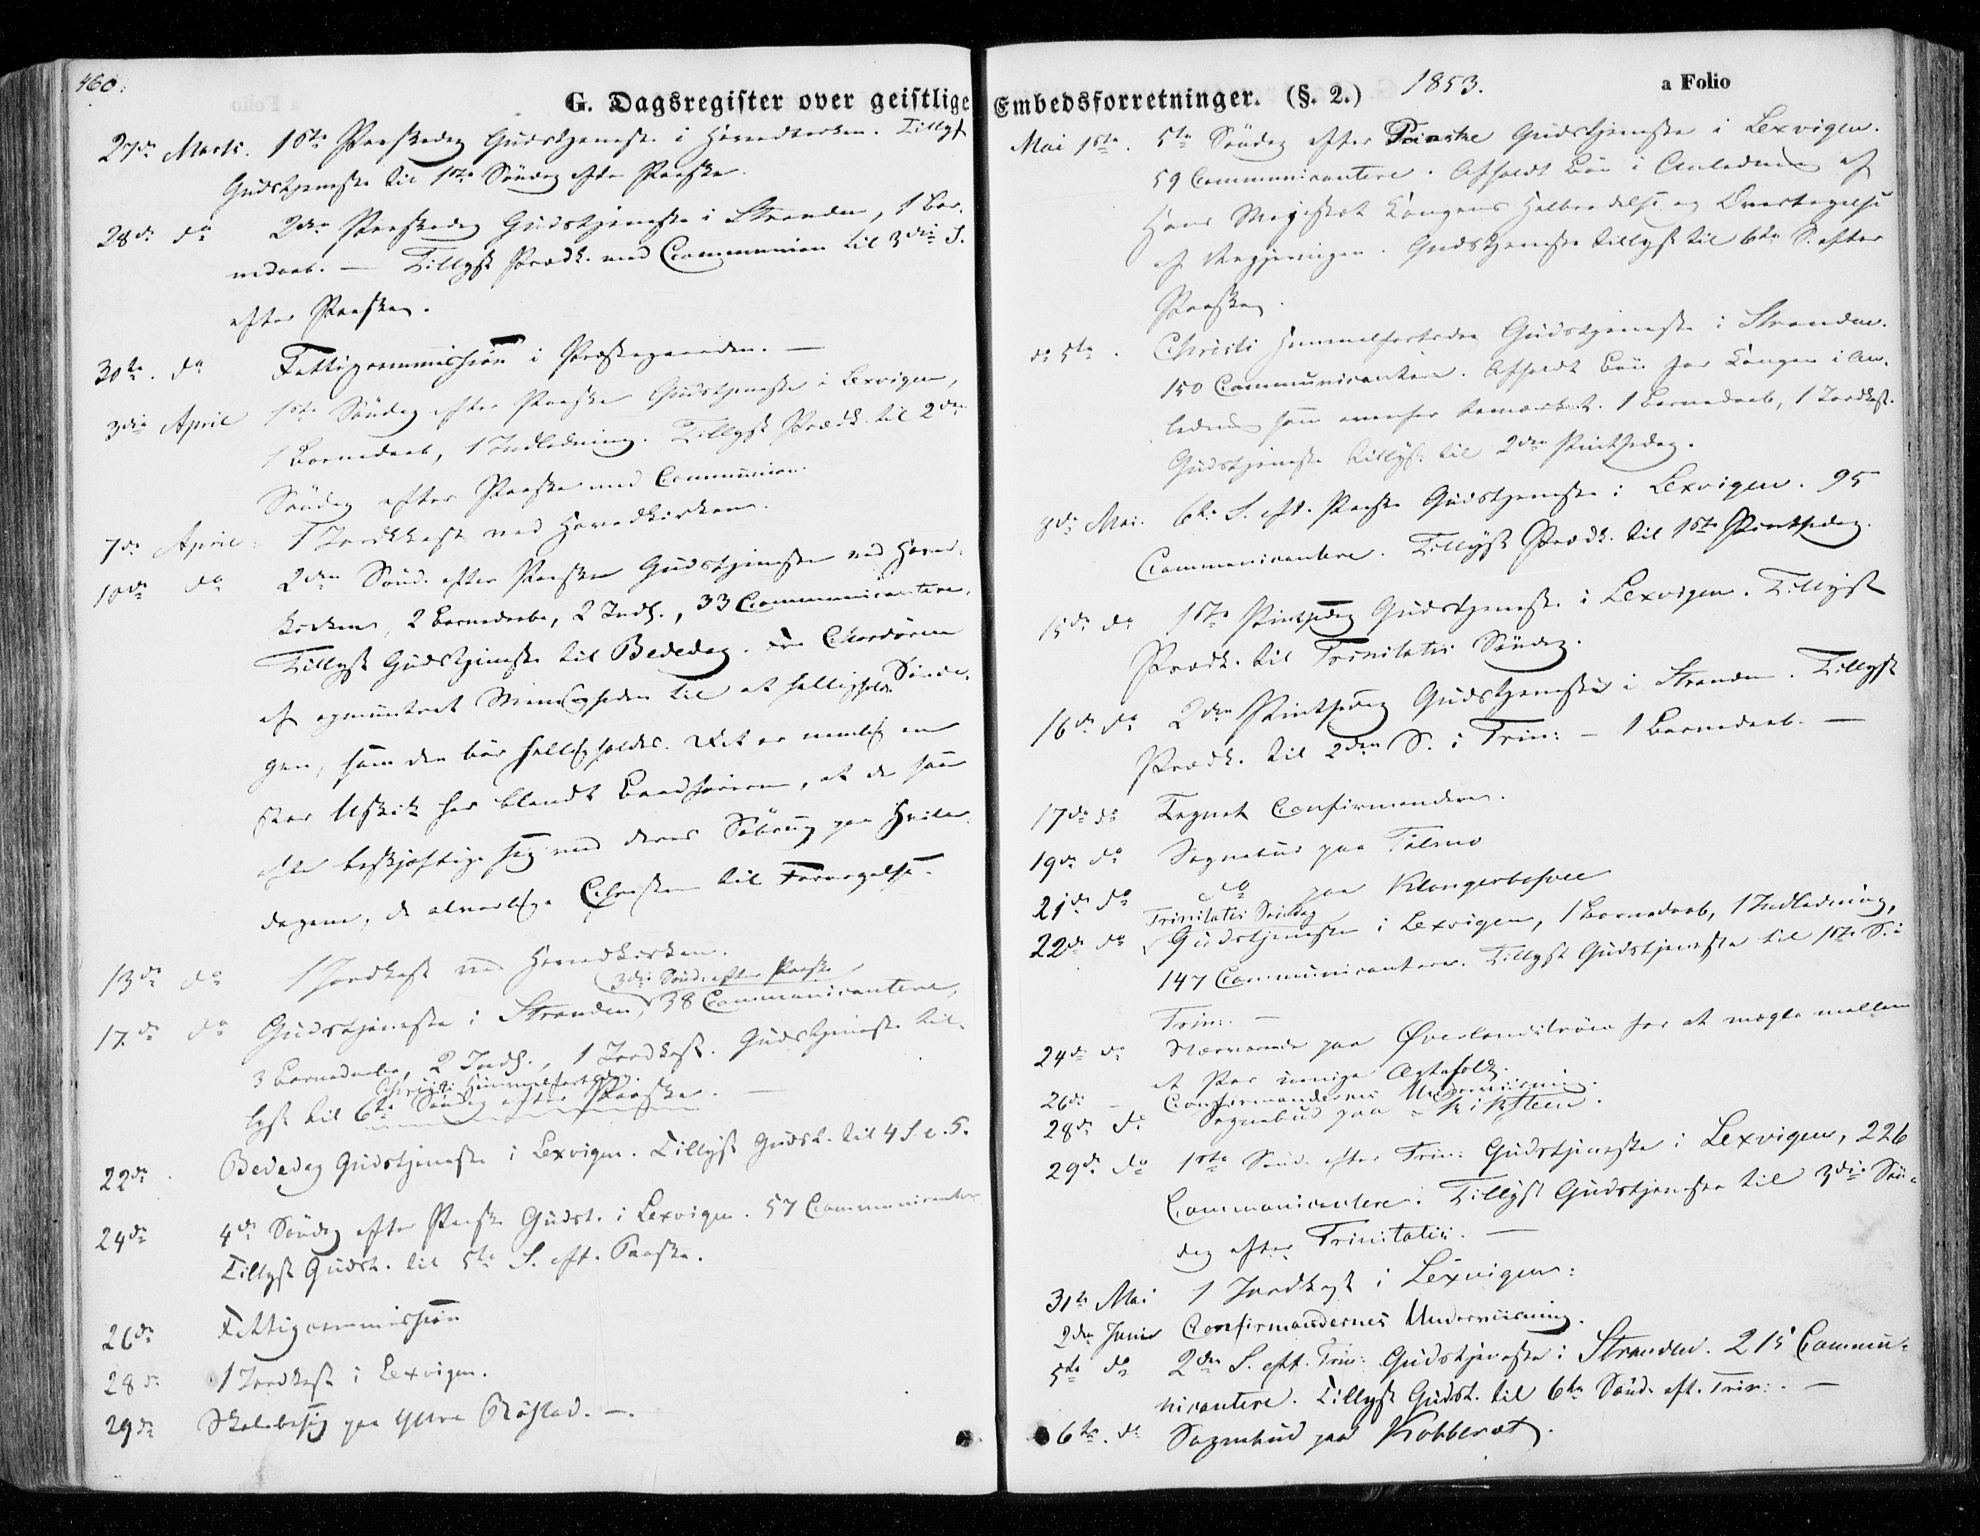 460.
G. Dagsregister over geistlige Embedsforretninger. (§. 2.) 1853. a Folio
27de Marts. 1ste Paaskedag Gudstjeneste i Hovedkirken. Tillyst
Gudstjeneste til 1ste Søndag efter Paaske.
28de do 2den Paaskedag Gudstjeneste i Stranden, 1 Bar-
nedaab. — Tillyst Prædk. med Communion til 3die S.
efter Paaske.
30te do Fattigcommission i Præstegaarden. —
3die April 1ste Søndag efter Paaske Gudstjeneste i Lexvigen,
1 Barnedaab, 1 Indledning. Tillyst Prædk. til 2den
Søndag efter Paaske med Communion.
7de April 1 Jordkast ved Hovedkirken.
10de do 2den Sønd. efter Paaske Gudstjeneste ved Hoved-
kirken, 2 Barnedaabe, 2 Indl., 33 Communicantere,
Tillyst Gudstjeneste til Bededag. Fra Chordøren
af opmuntret Menigheden til at helligholde Sønda-
gen, som den bør helligholdes. Det er nemlig en
stor Uskik her blandt, at de som
ofte beskjæftige sig med deres Søbrug paa Hvile-
dagene, de alvorlige Christne til Forargelse.
13de do 1 Jordkast ved Hovedkirken.
3die Sønd. efter Paaske
17de do Gudstjeneste i Stranden, 38 Communicantere,
3 Barnedaabe, 2 Indl., 1 Jordkast. Gudstjeneste til-
Christi Himmelfartsdag.
lyst til 6te Søndag efter Paaske. —
22de Bededag Gudstjeneste i Lexvigen. Tillyst Gudst. til 4 S. e. P.
24de 4de Søndag efter Paaske Gudst. i Lexvigen. 57 Communicanter
Tillyst Gudst. til 5te S. eft. Paaske.
26de Fattigcommission
28de 1 Jordkast i Lexvigen.
29de Skolebesøg paa Ytre Røstad. —
Mai 1ste. 5te Søndag efter Paaske Gudstjeneste i Lexvigen.
59 Communicantere. Afholdt Bøn i Anledning af
Hans Majestæt Kongens Helbredelse og Overtagelse
af Regjeringen. Gudstjeneste tillyst til 6te S. efter
Paaske.
do 5te. Christi Himmelfartsdag Gudstjeneste i Stranden.
150 Communicantere. Afholdt Bøn for Kongen i An-
ledning som ovenfor bemærket. 1 Barnedaab, 1 Jordkast.
Gudstjeneste tillyst til 2den Pintsedag.
8de Mai. 6te S. eft. Paaske Gudstjeneste i Lexvigen. 95
Communicantere. Tillyst Prædk. til 1ste Pintsedag.
15de do 1ste Pintsedag Gudstjeneste i Lexvigen. Tillyst
Prædk. til Trinitatis Søndag.
16de do 2den Pintsedag Gudstjeneste i Stranden. Tillyst
Prædk. til 2den S. i Trin: — 1 Barnedaab. —
17de do Tegnet Confirmander.
19de do Sognebud paa
21de do do paa
Trinitatis Søndag
22de do Gudstjeneste i Lexvigen, 1 Barnedaab, 1 Indledning,
147 Communicantere. Tillyst Gudstjeneste til 1ste S. i
Trin: —
24de do Nærværende paa for at mægle mellem
et Par uenige Ægtefolk.
26de — Confirmandernes Underviisning.
28de do Sognebud paa
29de do 1ste Sønd. efter Trin: Gudstjeneste i Lexvigen, 226
Communicantere. Tillyst Gudstjeneste til 3die Søn-
dag efter Trinitatis. —
31te Mai 1 Jordkast i Lexvigen:
2den Junii Confirmandernes Underviisning.
5te do 2den S. eft. Trin: Gudstjeneste i Stranden. 215 Commu-
nicantere. Tillyst Gudst. til 6te Sønd. eft. Trin:. —
6te. do Sognebud paa Kobberæt.